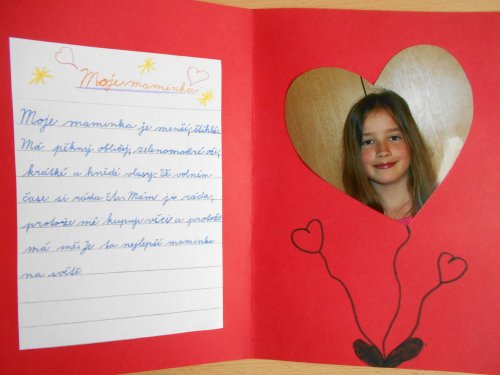 Moje maminka
Moje maminka je menší, štíhlá.
Má pěkný obličej, zelenomodré oči,
krátké a hnědé vlasy. Ve volném
čase si ráda čte. Mám ji ráda,
protože mě kupuje věci a protože
má mě. Je to nejlepší maminka
na světě.